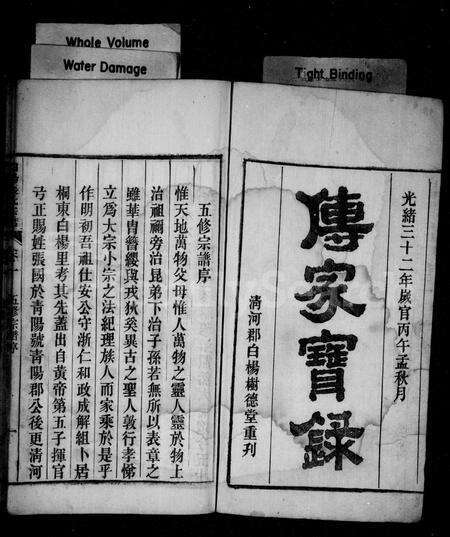 Whole Volume
Water Damage
Tight Binding
光緒三十二年歲官丙午孟秋月
傳家寶錄
清河郡白楊樹德堂重刋
五修宗譜序
惟天地萬物父母惟人萬物之靈人靈於物上
治祖禰旁治昆弟下治子孫若無所以表章之
雖華胄簪纓與戎狄奚異古之聖人敦行孝悌
立為大宗小宗之法紀理族人而家乘於是乎
作明初吾祖仕安公守浙仁和政成解組卜居
桐東白楊里考其先蓋出自黃帝第五子揮官
弓正賜姓張國於靑陽號靑陽郡公後更淸河
五修宗譜序